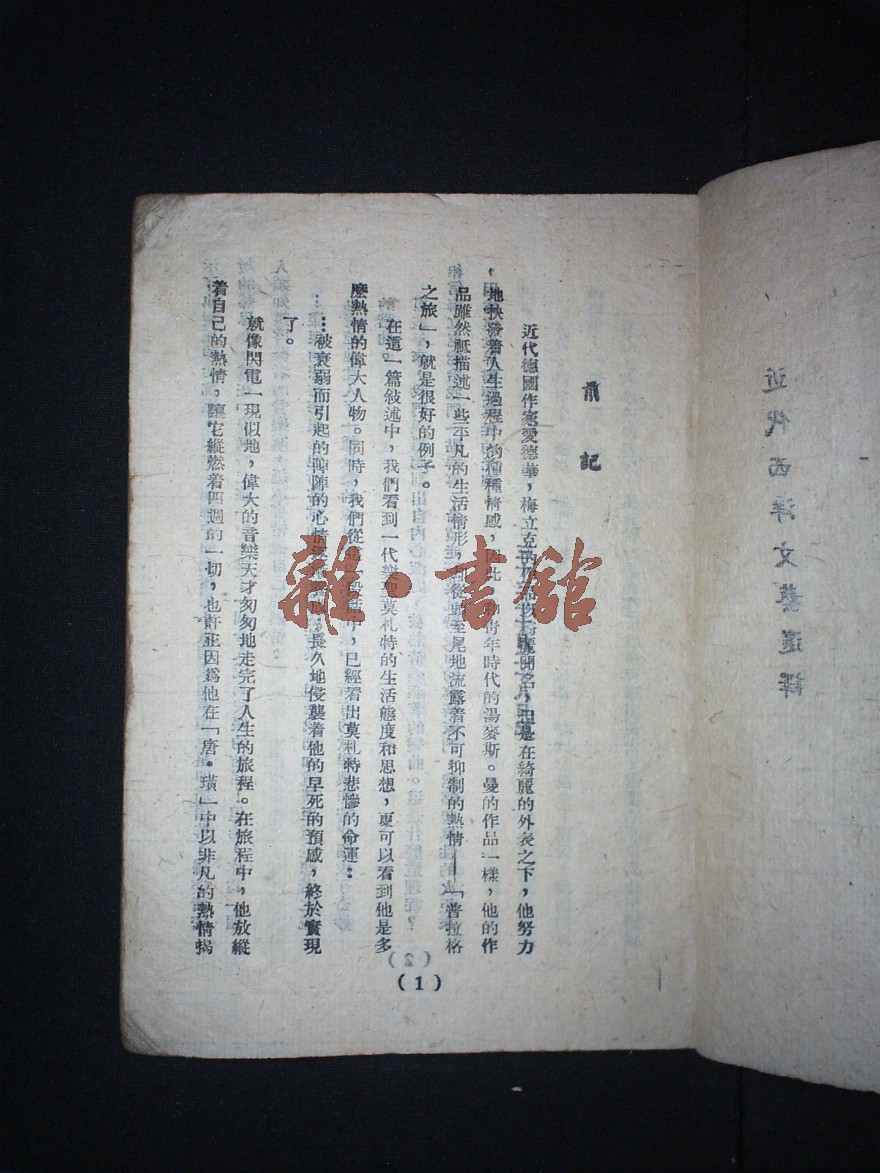 前記
近代德國作家愛德華，梅立克
在綺麗的外表之下，他努力
地抉發着人生過程中的種種情感，因此，
青年時代的湯麥斯。曼的作品一樣，他的作
品雖然祗描述一些平凡的生活情形，
從頭至尾地流露着不可抑制的熱情——「普拉格
之旅」，就是很好的例子。
在這一篇敍述中，我們看到一代樂聖莫札特的生活態度和思想，更可以看到他是多
麽熱情的偉大人物。同時，我們從這一段話中，已經看出莫札特悲慘的命運：
…被衰弱而引起的陣陣的心情
長久地侵襲着他的早死的預感，終於實現
了。
就像閃電一現似地，偉大的音樂天才匆匆地走完了人生的旅程。在旅程中，他放縱
着自己的熱情，讓它縱燃着四週的一切，也許正因爲他在「唐。璜」中以非凡的熱情揭
(1)
(2)
近代西洋文藝選譯
雜·書館